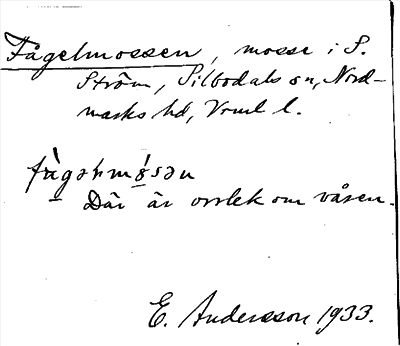 Fågelmossen, mosse i S.
Ström, Silbodals sn, Nord-
marks hd, Vrml l.
fågəhmɵ́sən
Där är orrlek om våren.
E. Andersson 1933.